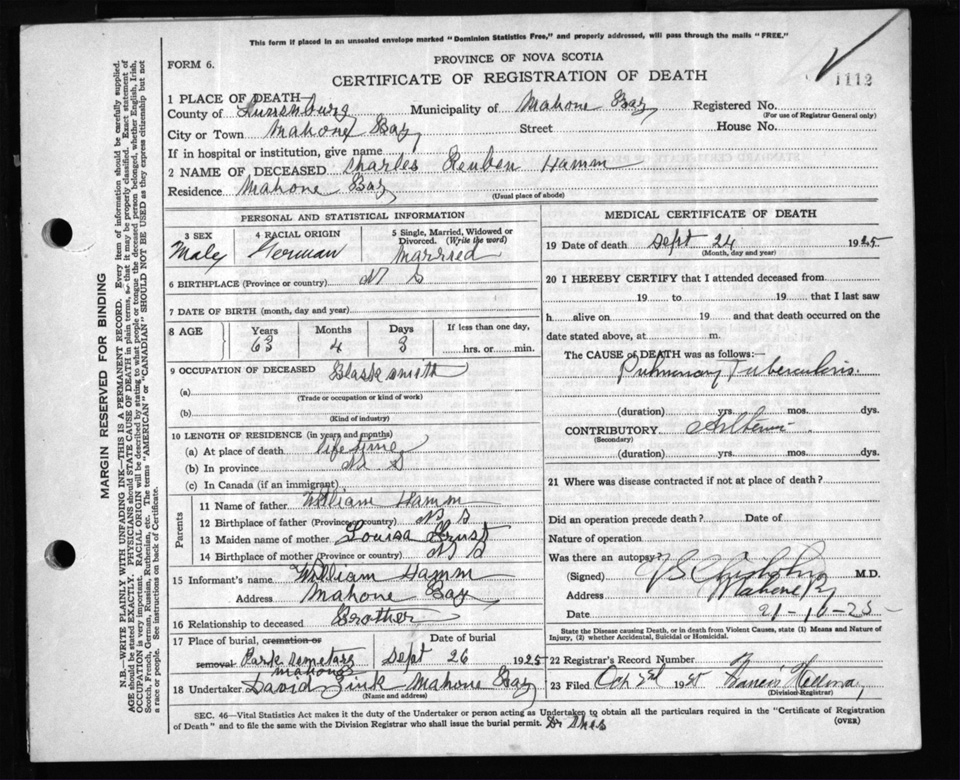 This form if placed in an unsealed envelope marked "Dominion Statistics Free," and properly addressed, will pass through the mails "FREE."
FORM 6.
PROVINCE OF NOVA SCOTIA
CERTIFICATE OF REGISTRATION OF DEATH
1112
MARGIN RESERVED FOR BINDING
N.B.—WRITE PLAINLY WITH UNFADING INK—THIS IS A PERMANENT RECORD. Every item of information should be carefully supplied.
AGE should be stated EXACTLY. PHYSICIANS should STATE CAUSE OF DEATH in plain terms, so that it may be properly classified. Exact statement of
OCCUPATION is very important. RACIAL ORIGIN will be described by stating to what people or tongue the deceased person belonged, whether English, Irish,
Scotch, French, German, Russian, Ruthenian, etc. The terms "AMERICAN" or "CANADIAN" SHOULD NOT BE USED as they express citizenship but not
a race or people. See instructions on back of Certificate.
1 PLACE OF DEATH—
County of Lunenburg Municipality of Mahone Bay Registered No.
(For use of Registrar General only)
City or Town Mahone Bay Street House No.
If in hospital or institution, give name
2 NAME OF DECEASED Charles Reuben Hamm
Residence Mahone Bay
(Usual place of abode)
PERSONAL AND STATISTICAL INFORMATION
3 SEX 4 RACIAL ORIGIN 5 Single, Married, Widowed or Divorced. (Write the word)
Male German Married
6 BIRTHPLACE (Province or country) N S
7 DATE OF BIRTH (month, day and year)
8 AGE Years Months Days If less than one day,
63 4 3 hrs. or min.
9 OCCUPATION OF DECEASED Blacksmith
(a)
(Trade or occupation or kind of work)
(b)
(Kind of industry)
10 LENGTH OF RESIDENCE (in years and months)
(a) At place of death life time
(b) In province N S
(c) In Canada (if an immigrant)
Parents
11 Name of father William Hamm
12 Birthplace of father (Province or country) N S
13 Maiden name of mother Louisa Ernst
14 Birthplace of mother (Province or country) N S
15 Informant's name William Hamm
Address Mahone Bay
16 Relationship to deceased Brother
17 Place of burial, cremation or removal Date of burial
Park semetary Mahone Sept 26 1925
18 Undertaker David Zink Mahone Bay
(Name and address)
MEDICAL CERTIFICATE OF DEATH
19 Date of death Sept 24 1925
(Month, day and year)
20 I HEREBY CERTIFY that I attended deceased from
19 to 19 that I last saw
h alive on 19 and that death occurred on the
date stated above, at m.
The CAUSE of DEATH was as follows:—
Pulmonary Tuberculosis.
(duration) yrs. mos. dys.
CONTRIBUTORY
(Secondary)
(duration) yrs. mos. dys.
21 Where was disease contracted if not at place of death?
Did an operation precede death? Date of
Nature of operation
Was there an autopsy?
(Signed) Chisholm M.D.
Address Mahone B
Date 21-10-25
State the Disease causing Death, or in death from Violent Causes, state (1) Means and Nature of
Injury, (2) whether Accidental, Suicidal or Homicidal.
22 Registrar's Record Number
23 Filed Oct 192 Francis
(Division Registrar)
SEC. 46—Vital Statistics Act makes it the duty of the Undertaker or person acting as Undertaker to obtain all the particulars required in the "Certificate of Registration
of Death" and to file the same with the Division Registrar who shall issue the burial permit.
(OVER)